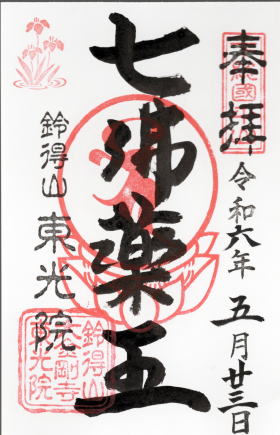 奉拝
令和六年五月廿三日
七佛薬王
鈴得山 東光院
鈴得山
金剛寺
東光院